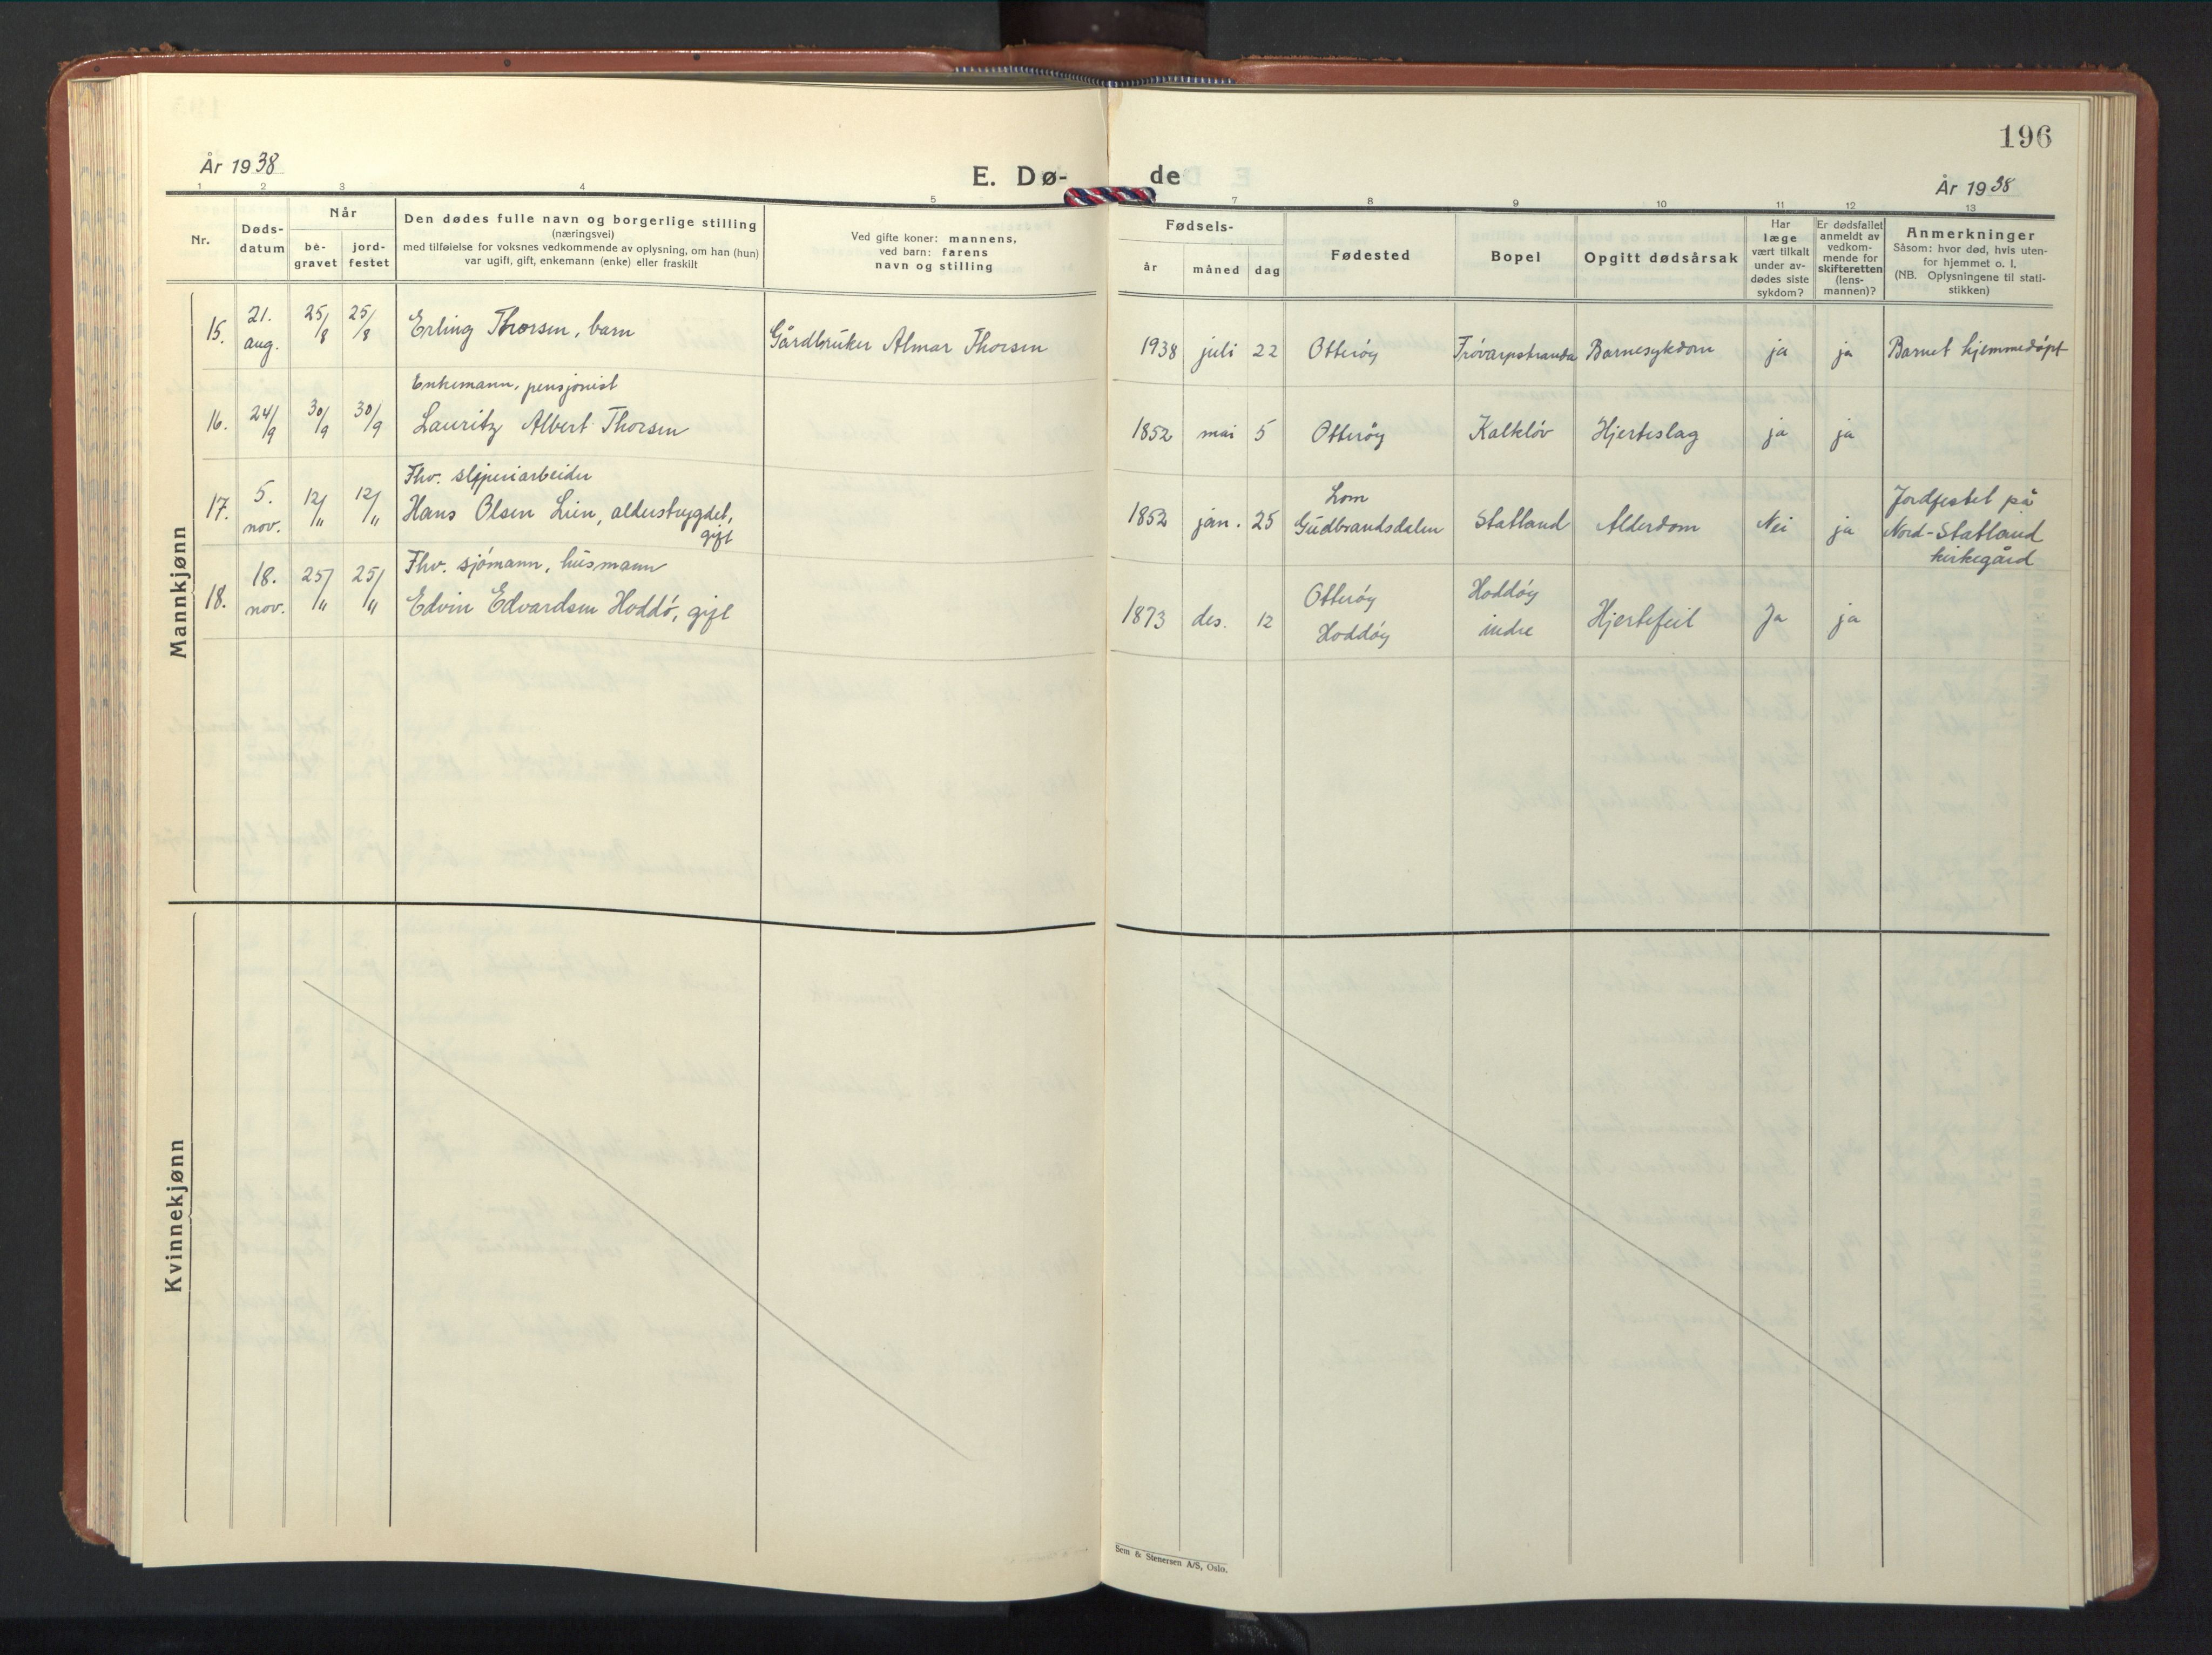 196
År 1938
E. Dø-
de
År 1938
1 2 3 4 5 7 8 9 10 11 12 13
Nr.
Døds-
datum
Når
be-
gravet
jord-
festet
Den dødes fulle navn og borgerlige stilling
(næringsvei)
med tilføielse for voksnes vedkommende av oplysning, om han (hun)
var ugift, gift, enkemann (enke) eller fraskilt
Ved gifte koner: mannens,
ved barn: farens
navn og stilling
Fødsels-
år måned dag
Fødested
Bopel
Opgitt dødsårsak
Har
læge
vært tilkalt
under av-
dødes siste
sykdom?
Er dødsfallet
anmeldt av
vedkom-
mende for
skifteretten
(lens-
mannen)?
Anmerkninger
Såsom: hvor død, hvis uten-
for hjemmet o. l.
(NB. Oplysningene til stati-
stikken)
Mannkjønn
15. 21. aug. 25/8 25/8 Erling Thorsen, barn Gårdbruker Almar Thorsen 1938 juli 22 Otterøy Tróvarpstranda Barnesykdom ja ja Barnet hjemmedøpt
Enkemann, pensjonist
16. 24/9 30/9 30/9 Lauritz Albert Thorsen 1852 mai 5 Otterøy Kalkløv Hjerteslag ja ja
Fhv. sliperiarbeider
17. 5. nov. 12/11 12/11 Hans Olsen Lien, alderstrygdet, gift 1852 jan. 25 Lom Gudbrandsdalen Statland Alderdom Nei ja Jordfestet på
Nord-Statland
kirkegård
Fhv. sjømann, husmann
18. 18. nov. 25/11 25/11 Edvin Edvardsen Hoddø, gift 1873 des. 12 Otterøy Hoddøy Hoddøy indre Hjertefeil Ja ja
Kvinnekjønn
Sem & Stenersen A/S, Oslo.